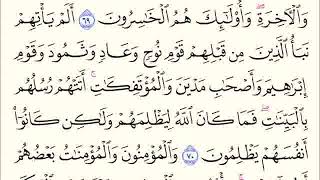 وَالْآخِرَةِ ۖ وَأُولَٰئِكَ هُمُ الْخَاسِرُونَ ٦٩ أَلَمْ يَأْتِهِمْ
نَبَأُ الَّذِينَ مِن قَبْلِهِمْ قَوْمِ نُوحٍ وَعَادٍ وَثَمُودَ وَقَوْمِ
إِبْرَاهِيمَ وَأَصْحَابِ مَدْيَنَ وَالْمُؤْتَفِكَاتِ ۚ أَتَتْهُمْ رُسُلُهُم
بِالْبَيِّنَاتِ ۖ فَمَا كَانَ اللَّهُ لِيَظْلِمَهُمْ وَلَٰكِن كَانُوا
أَنفُسَهُمْ يَظْلِمُونَ ٧٠ وَالْمُؤْمِنُونَ وَالْمُؤْمِنَاتُ بَعْضُهُمْ